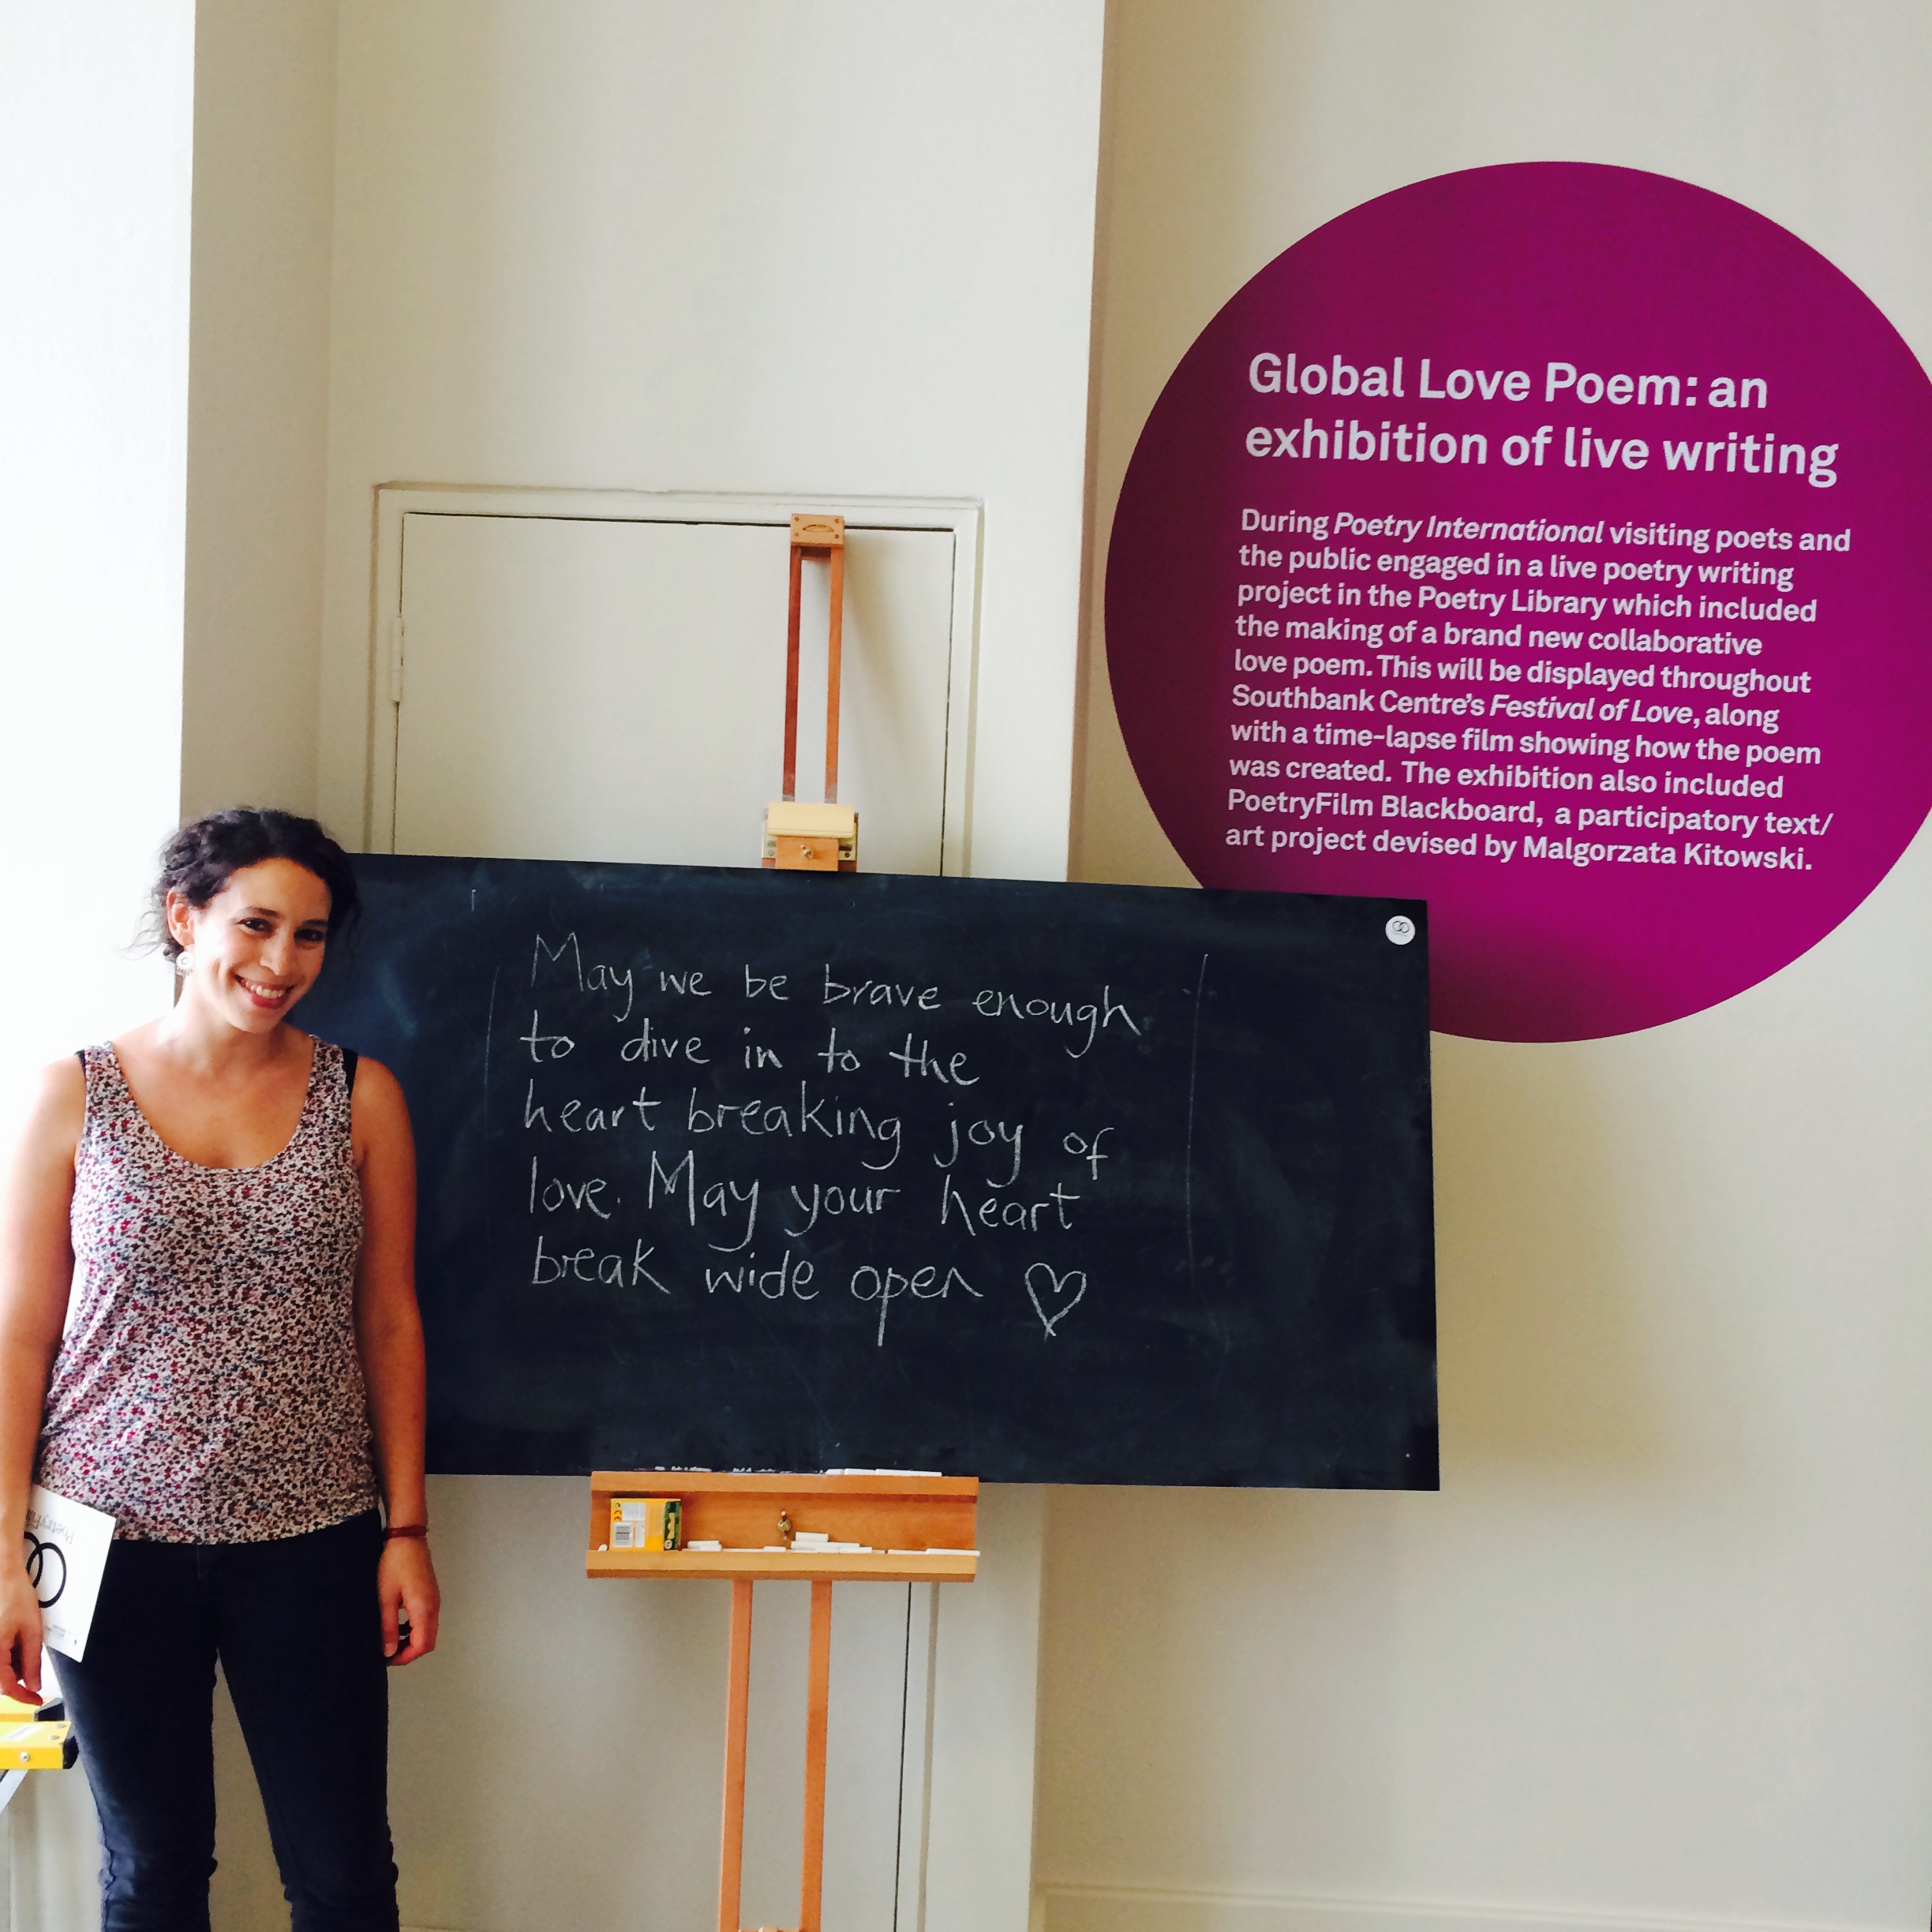 Global Love Poem: an
exhibition of live writing
During Poetry International visiting poets and
the public engaged in a live poetry writing
project in the Poetry Library which included
the making of a brand new collaborative
love poem. This will be displayed throughout
Southbank Centre's Festival of Love, along
with a time-lapse film showing how the poem
was created. The exhibition also included
PoetryFilm Blackboard, a participatory text/
art project devised by Malgorzata Kitowski.
May we be brave enough
to dive in to the
heart breaking joy of
love. May your heart
break wide open
PoetryFilm